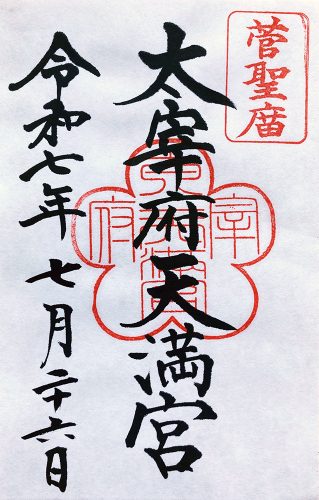 菅聖庿
太宰府天満宮
令和七年 七月二十六日